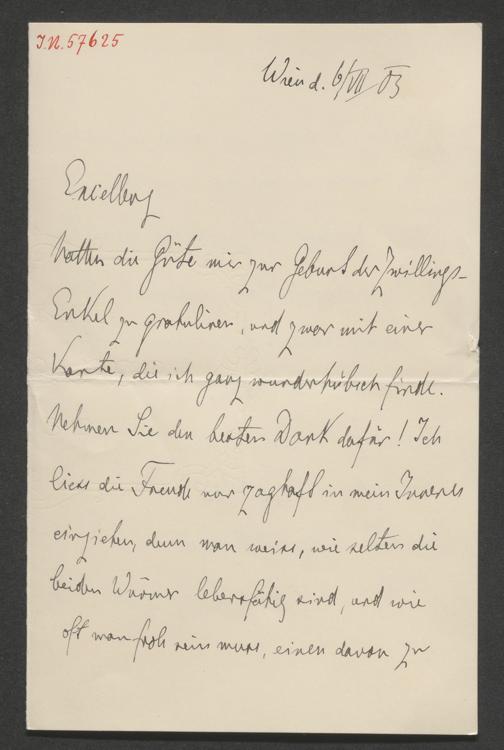 I.N. 57625
Wien d. 6/VII 03
Excellenz
hatten die Güte mir zur Geburt der Zwillings-
Enkel zu gratulieren, und zwar mit einer
Karte, die ich ganz wunderhübsch finde.
Nehmen Sie den besten Dank dafür! Ich
liess die Freude nur zaghaft in mein Inneres
einziehen, denn man weiss, wie selten die
beiden Würmer lebensfähig sind, und wie
oft man froh sein muss, einen davon zu